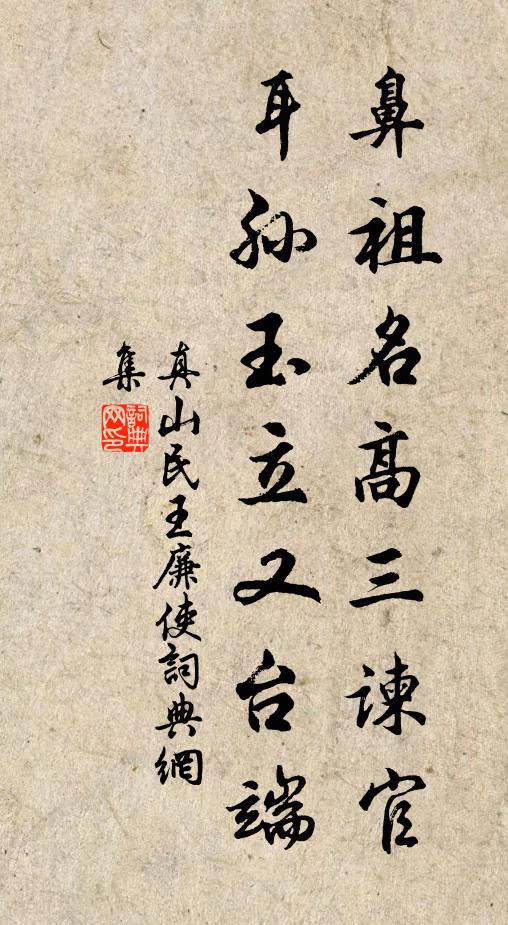 鼻祖名高三諫官
耳孫玉立又台端
真山民王廉使詞典網
集
詞典網印